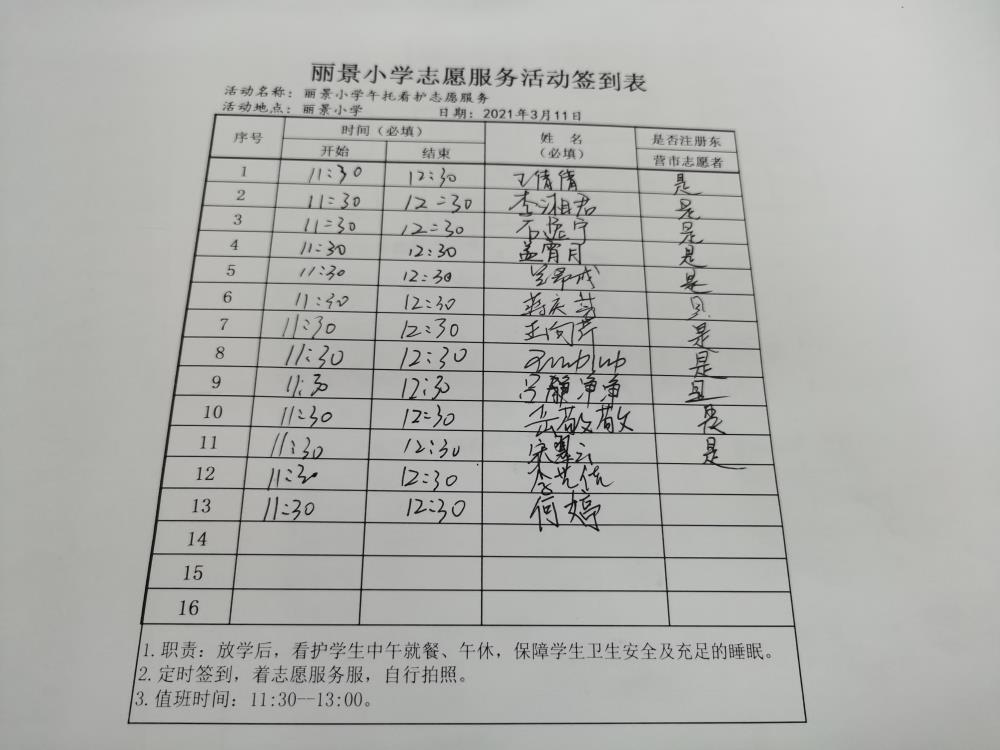 丽景小学志愿服务活动签到表
活动名称：丽景小学午托看护志愿服务
活动地点：丽景小学 日期：2021年3月11日
序号 时间（必填） 姓 名（必填） 是否注册东营市志愿者
开始 结束
1 11:30 12:30 王倩倩 是
2 11:30 12:30 李湘君 是
3 11:30 12:30 是
4 11:30 12:30 孟宵月 是
5 11:30 12:30 是
6 11:30 12:30 是
7 11:30 12:30 王向芹 是
8 11:30 12:30 是
9 11:30 12:30 吕静净净 是
10 11:30 12:30 岳敬敬 是
11 11:30 12:30 是
12 11:30 12:30
13 11:30 12:30 何婷
14
15
16
1. 职责：放学后，看护学生中午就餐、午休，保障学生卫生安全及充足的睡眠。
2. 定时签到，着志愿服务服，自行拍照。
3. 值班时间：11:30--13:00。